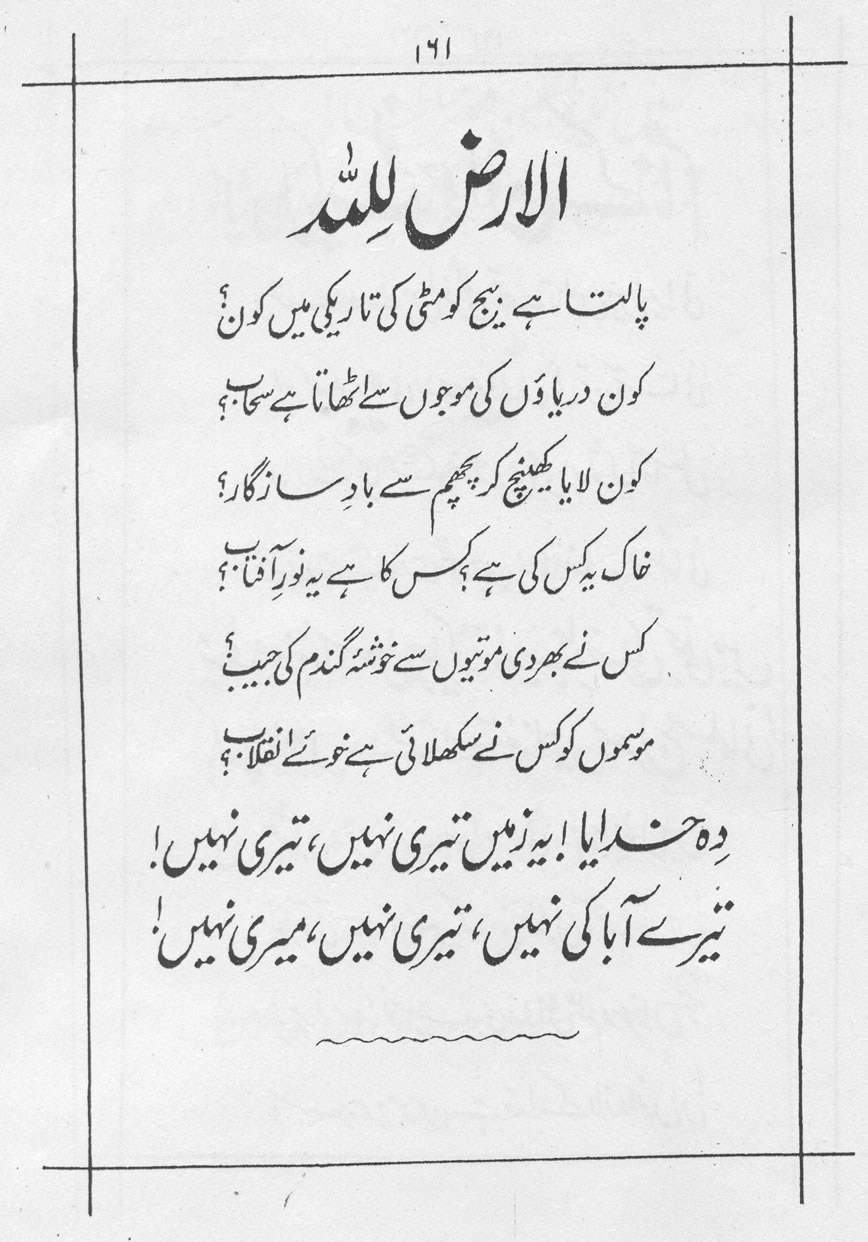 ۱۶۱
الارض لِلّٰہ
پالتا ہے بیج کو مٹی کی تاریکی میں کون؟
کون دریاؤں کی موجوں سے اٹھاتا ہے سحاب؟
کون لایا کھینچ کر پچھم سے بادِ سازگار؟
خاک یہ کس کی ہے؟ کس کا ہے یہ نورِ آفتاب؟
کس نے بھر دی موتیوں سے خوشۂ گندم کی جیب؟
موسموں کو کس نے سکھلائی ہے خوئے انقلاب؟
دِہ خدایا! یہ زمیں تیری نہیں، تیری نہیں!
تیرے آبا کی نہیں، تیری نہیں، میری نہیں!